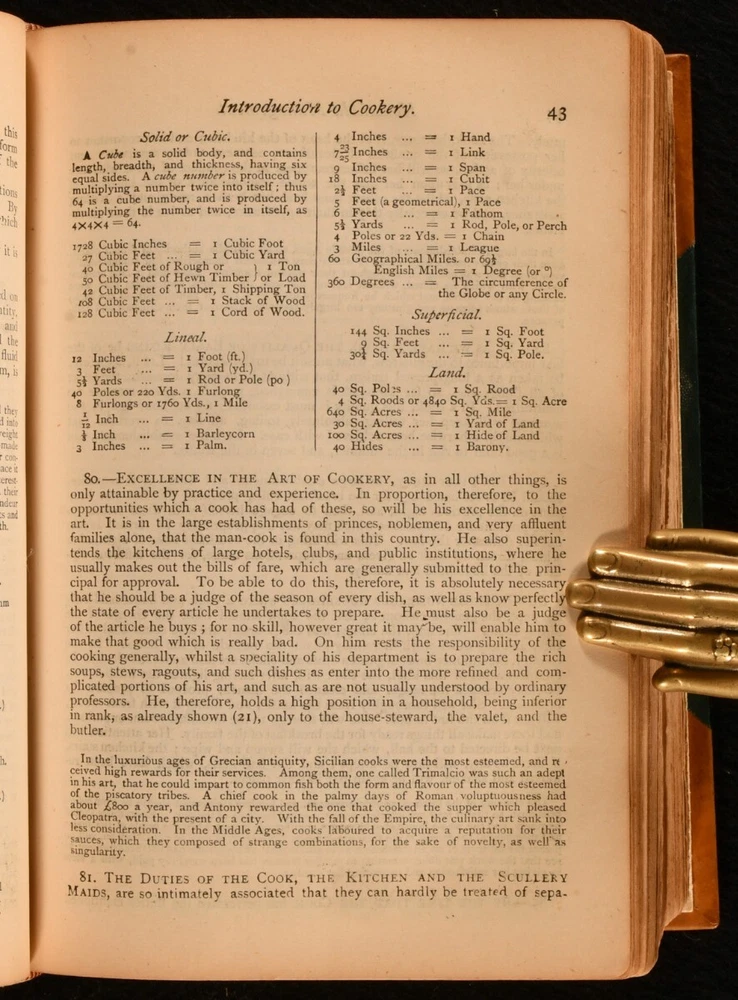 this
form
the
tions
By
which
it is
and
the
fluid
they
weight
made
their
and
Introduction to Cookery.
43
Solid or Cubic.
A Cube is a solid body, and contains
length, breadth, and thickness, having six
equal sides. A cube number is produced by
multiplying a number twice into itself; thus
64 is a cube number, and is produced by
multiplying the number twice in itself, as
4×4×4 = 64.
1728 Cubic Inches = 1 Cubic Foot
27 Cubic Feet ... = 1 Cubic Yard
40 Cubic Feet of Rough or } 1 Ton
50 Cubic Feet of Hewn Timber } or Load
42 Cubic Feet of Timber, 1 Shipping Ton
108 Cubic Feet ... = 1 Stack of Wood
128 Cubic Feet ... = 1 Cord of Wood.
Lineal.
12 Inches ... = 1 Foot (ft.)
3 Feet ... = 1 Yard (yd.)
5½ Yards ... = 1 Rod or Pole (po)
40 Poles or 220 Yds. 1 Furlong
8 Furlongs or 1760 Yds., 1 Mile
1/12 Inch ... = 1 Line
⅓ Inch ... = 1 Barleycorn
3 Inches ... = 1 Palm.
4 Inches ... = 1 Hand
7 23/25 Inches ... = 1 Link
9 Inches ... = 1 Span
18 Inches ... = 1 Cubit
2½ Feet ... = 1 Pace
5 Feet (a geometrical), 1 Pace
6 Feet ... = 1 Fathom
5½ Yards ... = 1 Rod, Pole, or Perch
4 Poles or 22 Yds. = 1 Chain
3 Miles ... = 1 League
60 Geographical Miles. or 69½
English Miles = 1 Degree (or °)
360 Degrees ... = The circumference of
the Globe or any Circle.
Superficial.
144 Sq. Inches ... = 1 Sq. Foot
9 Sq. Feet ... = 1 Sq. Yard
30¼ Sq. Yards ... = 1 Sq. Pole.
Land.
40 Sq. Poles ... = 1 Sq. Rood
4 Sq. Roods or 4840 Sq. Yds. = 1 Sq. Acre
640 Sq. Acres ... = 1 Sq. Mile
30 Sq. Acres ... = 1 Yard of Land
100 Sq. Acres ... = 1 Hide of Land
40 Hides ... = 1 Barony.
80.—EXCELLENCE IN THE ART OF COOKERY, as in all other things, is
only attainable by practice and experience. In proportion, therefore, to the
opportunities which a cook has had of these, so will be his excellence in the
art. It is in the large establishments of princes, noblemen, and very affluent
families alone, that the man-cook is found in this country. He also superin-
tends the kitchens of large hotels, clubs, and public institutions, where he
usually makes out the bills of fare, which are generally submitted to the prin-
cipal for approval. To be able to do this, therefore, it is absolutely necessary
that he should be a judge of the season of every dish, as well as know perfectly
the state of every article he undertakes to prepare. He must also be a judge
of the article he buys; for no skill, however great it may be, will enable him to
make that good which is really bad. On him rests the responsibility of the
cooking generally, whilst a speciality of his department is to prepare the rich
soups, stews, ragouts, and such dishes as enter into the more refined and com-
plicated portions of his art, and such as are not usually understood by ordinary
professors. He, therefore, holds a high position in a household, being inferior
in rank, as already shown (21), only to the house-steward, the valet, and the
butler.
In the luxurious ages of Grecian antiquity, Sicilian cooks were the most esteemed, and re-
ceived high rewards for their services. Among them, one called Trimalcio was such an adept
in his art, that he could impart to common fish both the form and flavour of the most esteemed
of the piscatory tribes. A chief cook in the palmy days of Roman voluptuousness had
about £800 a year, and Antony rewarded the one that cooked the supper which pleased
Cleopatra, with the present of a city. With the fall of the Empire, the culinary art sank into
less consideration. In the Middle Ages, cooks laboured to acquire a reputation for their
sauces, which they composed of strange combinations, for the sake of novelty, as well as
singularity.
81. THE DUTIES OF THE COOK, THE KITCHEN AND THE SCULLERY
MAIDS, are so intimately associated that they can hardly be treated of sepa-